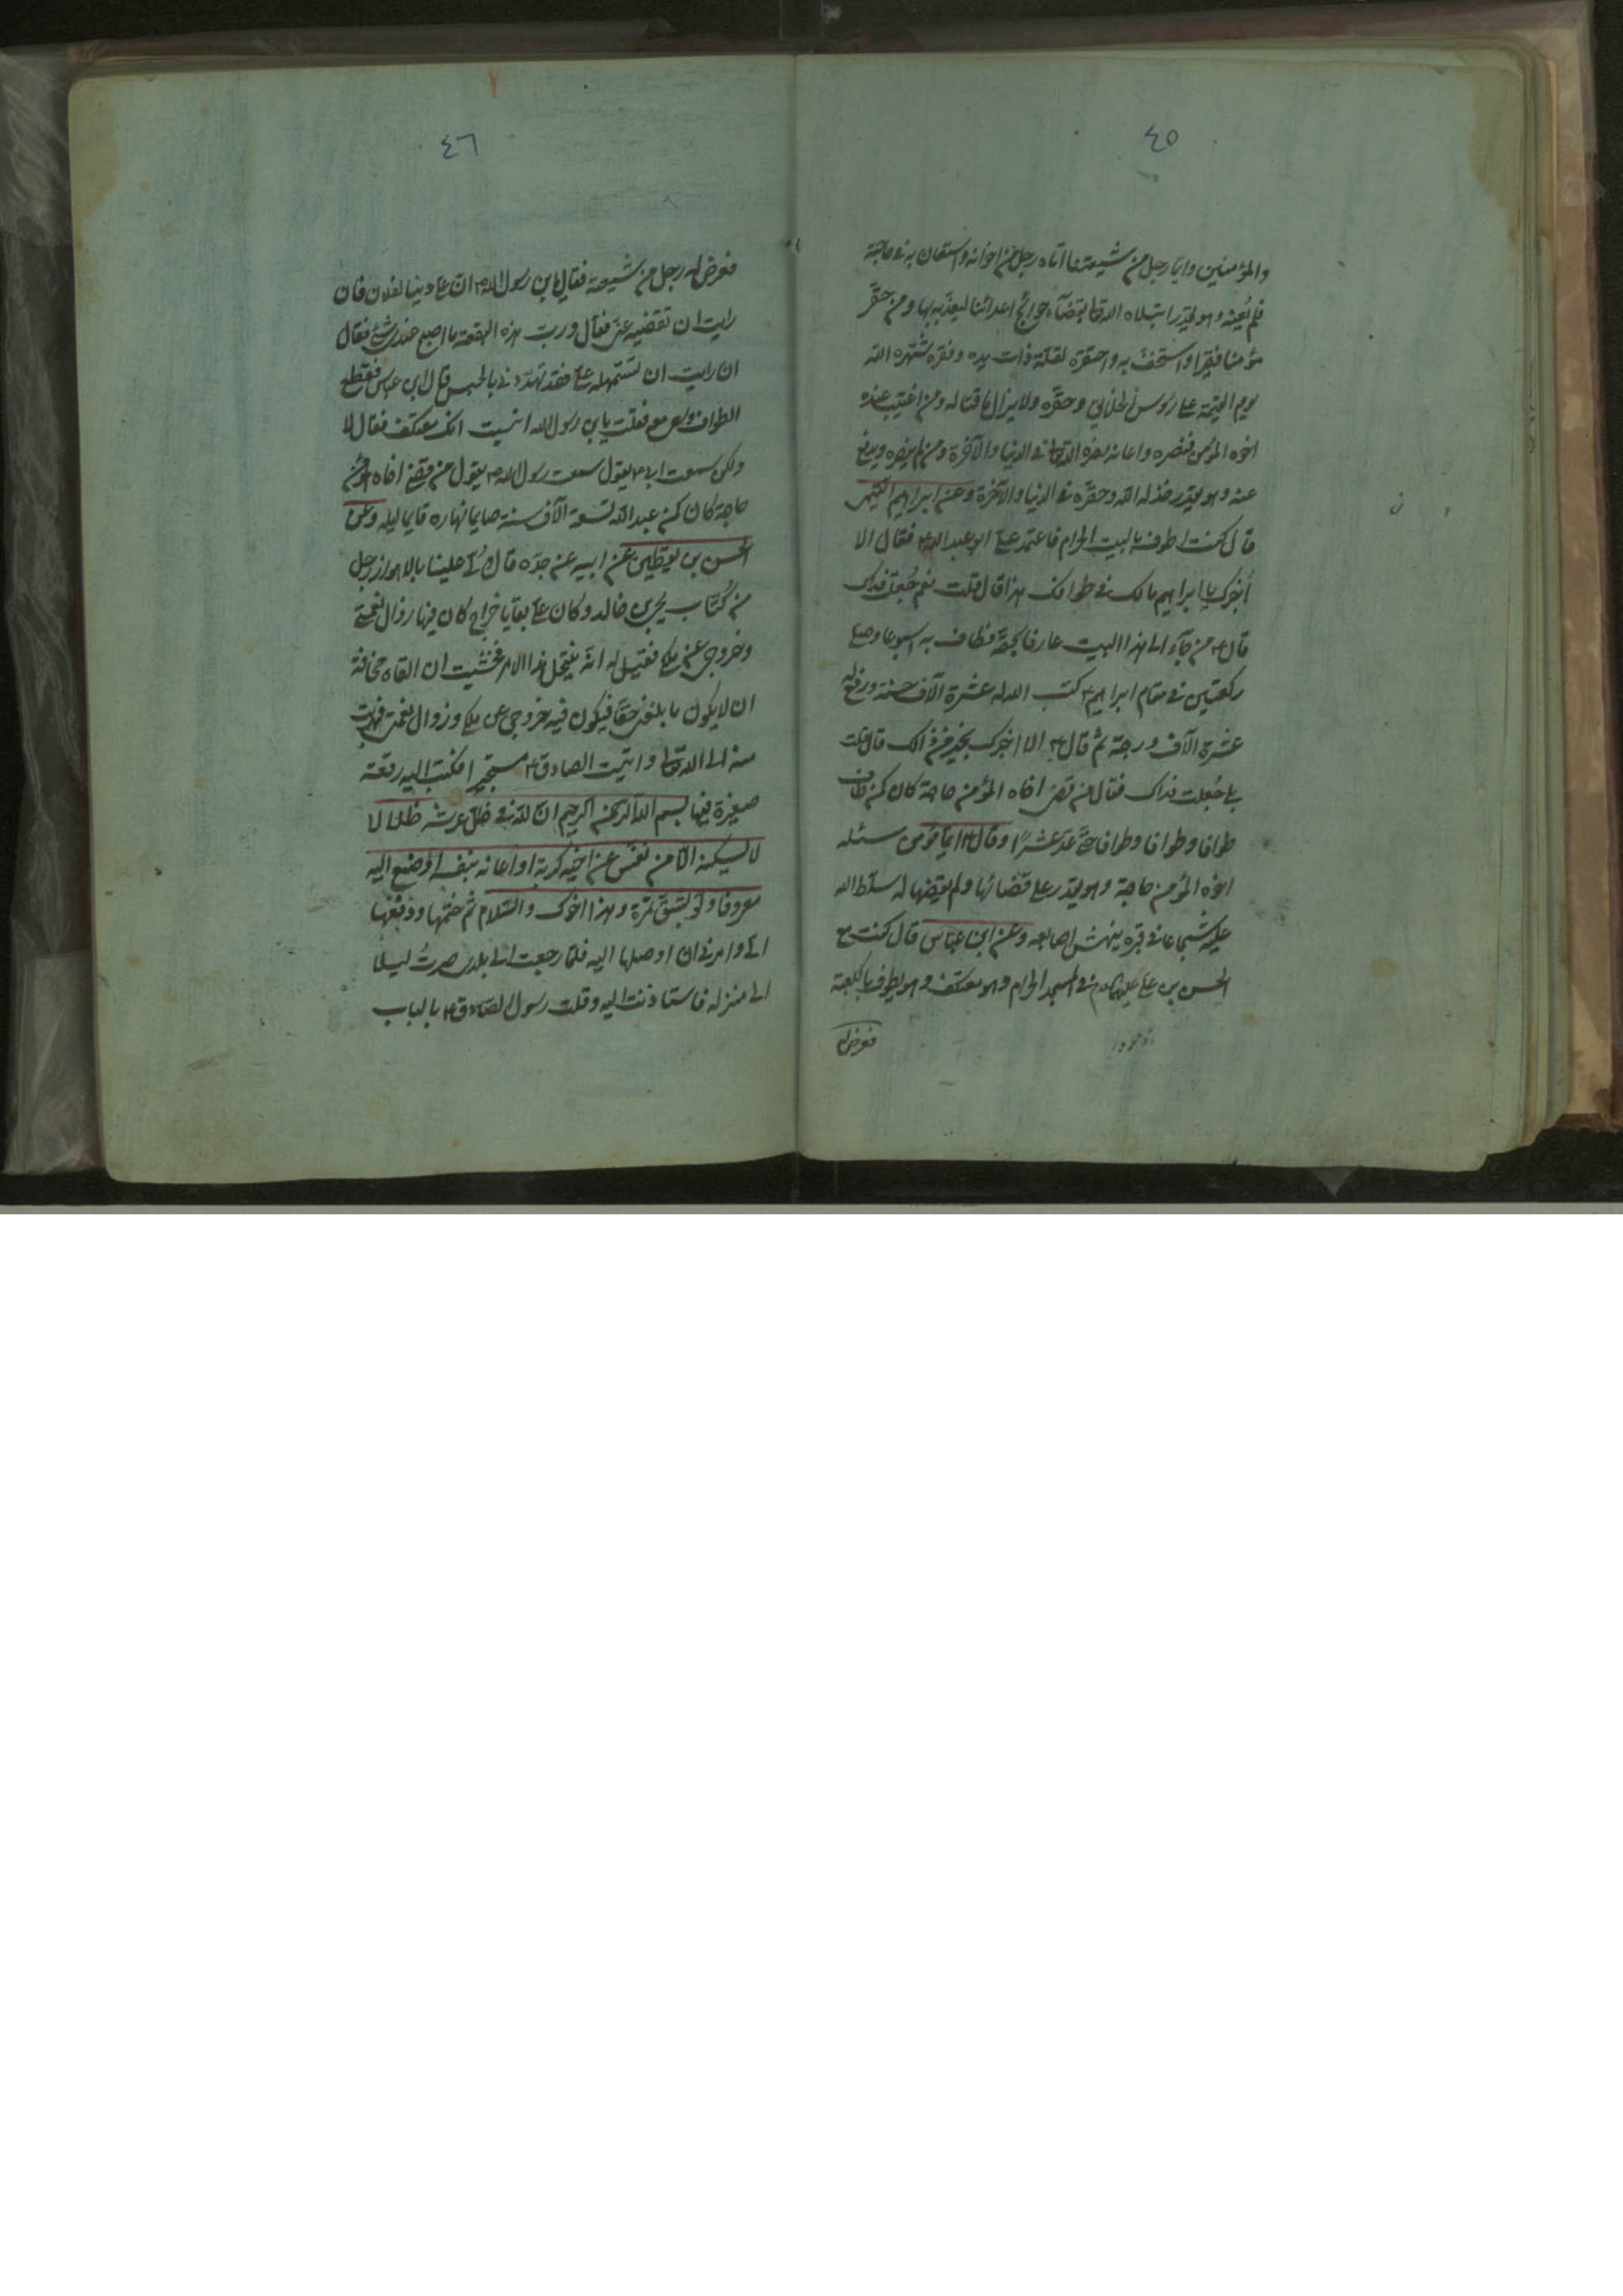 ٤٥
والمؤمنين وايما رجل من شيعتنا اتاه رجل من اخوانه واستعان به في حاجة
فلم يُعِنه وهو يقدر ابتلاه الله تعا بقضآء حوائج اعدائنا ليعذّبه بها ومن حقّر
مؤمنا فقيرا واستخفّ به واحتقره لقلّة ذات يده وفقره شهّره الله
يوم القيمة على رؤس الخلائق وحقّره ولا يزال ماقتا له ومن اغتيب عنده
اخوه المؤمن فنصره واعانه نصره الله تعا في الدنيا والآخرة ومن لم ينصره ويدفع
عنه وهو يقدر خذله الله وحقّره في الدنيا والآخرة وعن ابراهيم التيمى
قال كنت اطوف بالبيت الحرام فاعتمد علىّ ابو عبد الله ع فقال الا
أخبرك يا ابراهيم مالك في طوافك هذا قال قلت نعم جُعلت فداك
قال ع من جآء الى هذا البيت عارفا بحقّه فطاف به اسبوعا وصلى
ركعتين في مقام ابراهيم ع كتب الله له عشرة آلاف حسنة ورفع له
عشرة آلاف درجة ثم قال ع الا اخبرك بخير من ذالك قال قلت
بلى جُعلت فداك فقال من قضى اخاه المؤمن حاجة كان كمن طاف
طوافا وطوافا وطوافا حتى عدّ عشرًا وقال ع ايّما مؤمن سئله
اخوه المؤمن حاجة وهو يقدر على قضائها ولم يقضها له سلّط الله
عليه شجاعا في قبره ينهش اصابعه وعن ابن عباس قال كنت مع
الحسن بن على عليهما السلام في المسجد الحرام وهو معتكف وهو يطوف بالكعبة
فعرض له
٤٦
فعرض له رجل من شيعته فقال يا بن رسول الله ص ان علىّ دينا لفلان فان
رايت ان تقضيه عنّى فقال وربّ هذه البقعة ما اصبح عندى شئ فقال
ان رايت ان تستمهله عنّى فقد تهدّدنى بالحبس قال ابن عباس فقطع
الطواف وسعى معه فقلت يا بن رسول الله انسيت انك معتكف فقال لا
ولكن سمعت ابى ع يقول سمعت رسول الله ص يقول من قضى اخاه المؤمن
حاجة كان كمن عبد الله تسعة آلاف سنة صايما نهاره قايما ليله وعن
الحسن بن يقطين عن ابيه عن جدّه قال ولّى علينا بالاهواز رجل
من كُتّاب يحيى بن خالد وكان علىّ بقايا خراج كان فيها زوال نعمتى
وخروجى عن ملكى فقيل لى انّه ينتحل هذا الامر فخشيت ان القاه مخافة
ان لا يكون ما بلغنى حقّا فيكون فيه خروجى عن ملكى وزوال نعمتى فهربت
منه الى الله تعا واتيت الصادق ع مستجيرا فكتب اليه رقعة
صغيرة فيها بسم الله الرحمن الرحيم انّ لله في ظلّ عرشه ظلالا لا
لا يسكنه الّا من نفّس عن اخيه كربة او اعانه بنفسه او صنع اليه
معروفا ولو بشقّ تمرة وهذا اخوك والسّلام ثم ختمها ودفعها
الىّ وامرنى ان اوصلها اليه فلمّا رجعت الى بلدى صرتُ ليلا
الى منزله فاستاذنت اليه وقلت رسول الصّادق ع بالباب